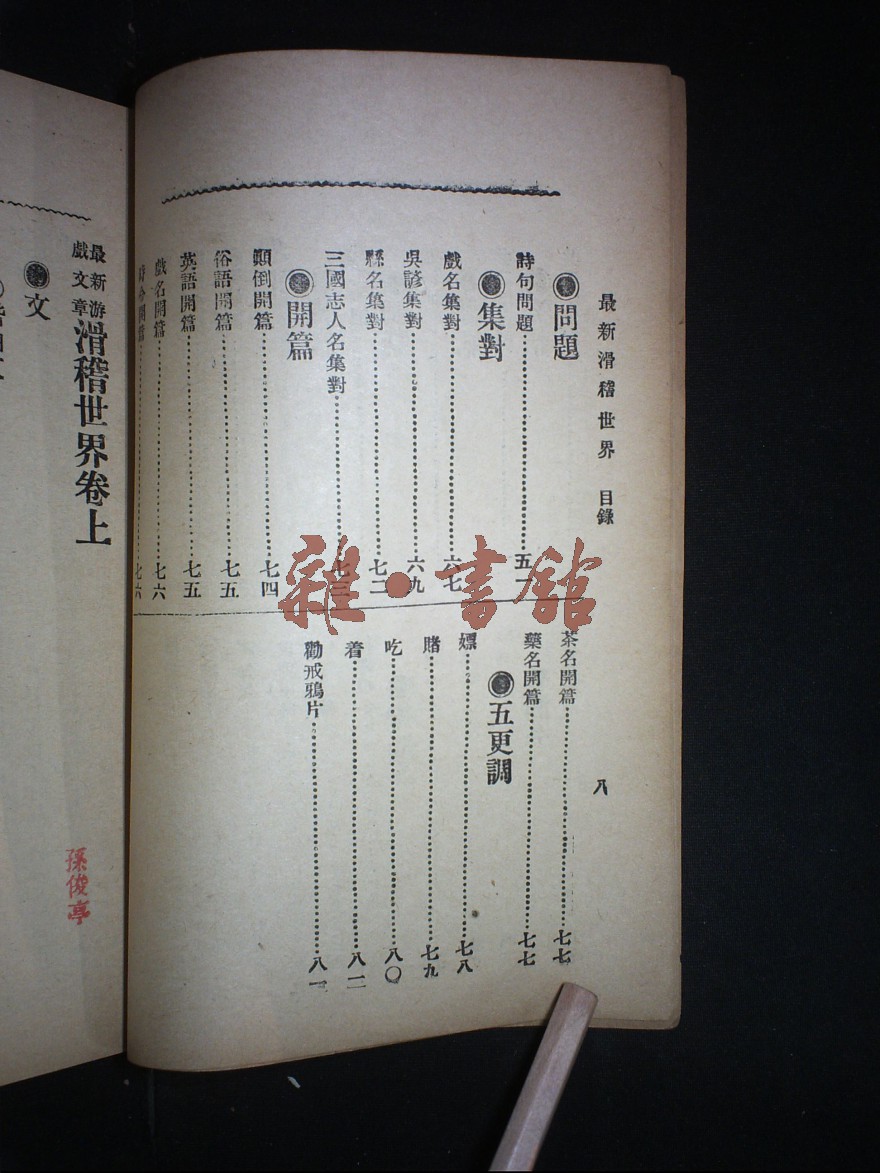 最新滑稽世界 目錄 八
問題
詩句問題 五一
集對
戲名集對 六七
吳諺集對 六九
縣名集對 七二
三國志人名集對 七三
開篇
顛倒開篇 七四
俗語開篇 七五
英語開篇 七五
戲名開篇 七六
開篇 七六
茶名開篇 七七
藥名開篇 七七
五更調
嫖 七八
賭 七九
吃 八〇
着 八一
勸戒鴉片 八一
最新游戲文章 滑稽世界卷上
文
孫俊亭
雜·書館